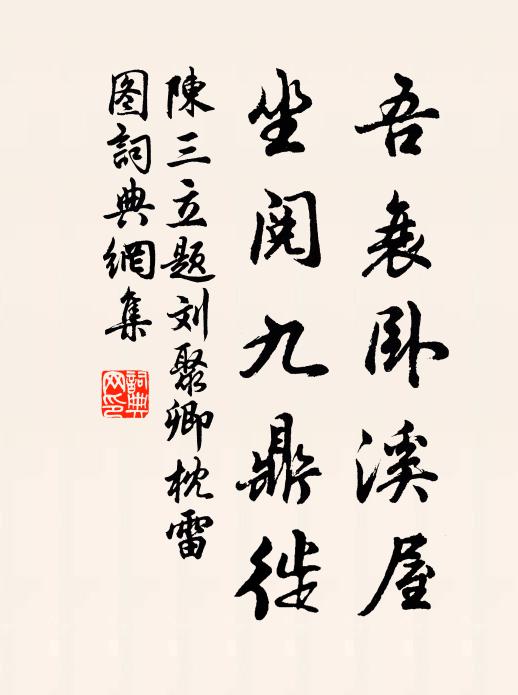 吾衰卧溪屋
坐阅九鼎徙
陳三立題刘聚卿枕雷
图詞典網集
詞典网印